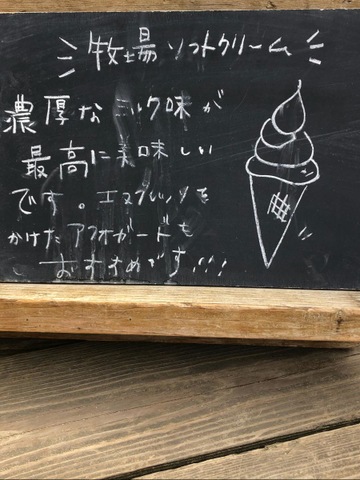 牧場ソフトクリーム
濃厚なミルク味が
最高に美味しい
です。エスプレッソを
かけたアフォガードも
おすすめです!!!